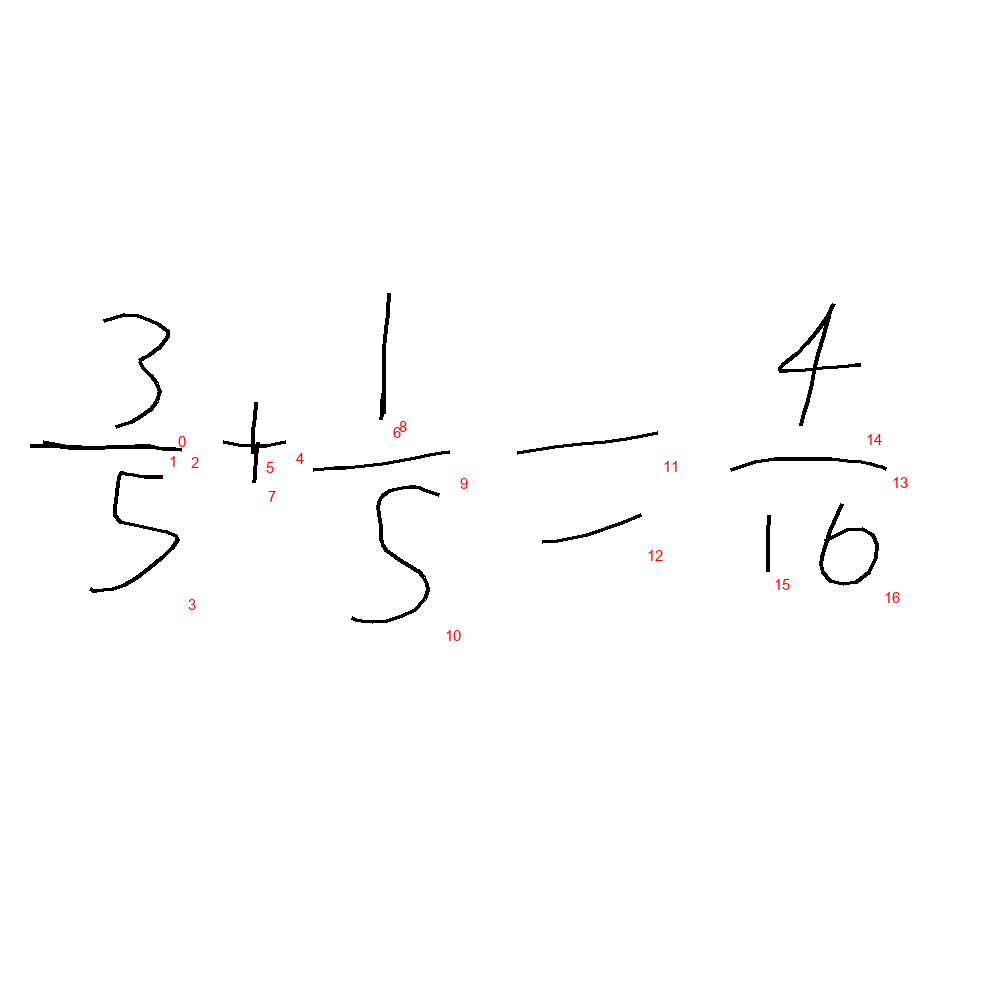 3/5 + 1/5 = 4/16
0 1 2 3 4 5 7 6 8 9 10 11 12 13 14 15 16